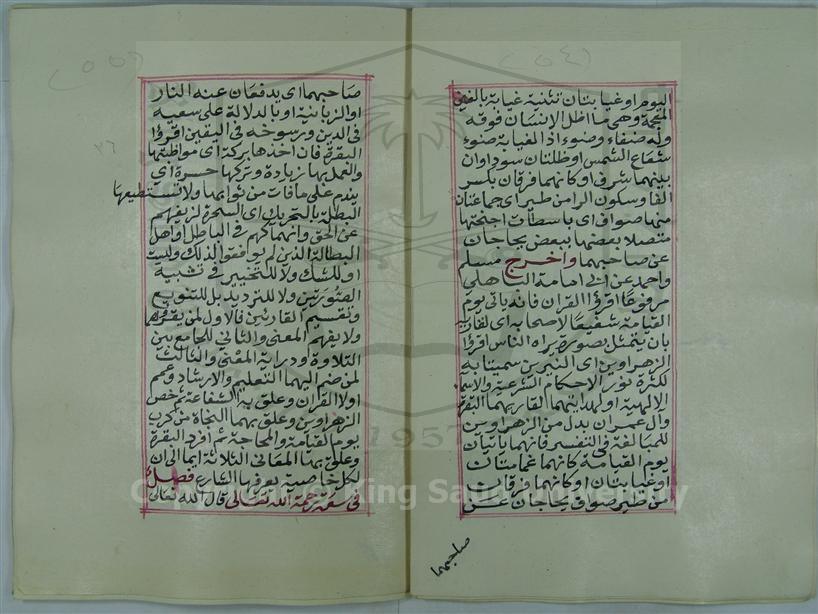 (٥٤)
اليوم او غيايتان تثنية غياية بالغين
المعجمة وهي ما اظل الانسان فوقه
وله صفاء وضوء اذ الغياية ضوء
شعاع الشمس او ظلتان سوداوان
بينهما شرف او كانهما فرقان بكسر
الفا وسكون الرا من طير اي جماعتان
منها صواف اي باسطات اجنحتها
متصلا بعضها ببعض يحاجان
عن صاحبهما واخرج مسلم
واحمد عن ابي امامة الباهلي
مرفوعا اقرؤا القران فانه ياتي يوم
القيامة شفيعا لاصحابه اي لقاريه
بان يتمثل بصورة يراه الناس اقرؤا
الزهراوين اي النيرين سميتا به
لكثرة نور الاحكام الشرعية والاسما
الالهية او لهدايتهما لقاريهما البقرة
وآل عمران بدل من الزهراوين
للمبالغة في التفسير فانهما ياتيان
يوم القيامة كانهما غمامتان
او غيايتان او كانهما فرقان
من طير صواف يحاجان عن
صاحبهما
(٥٥)
صاحبهما اي يدفعان عنه النار
او الزبانية او بالدلالة على سعيه
في الدين ورسوخه في اليقين اقرؤا
البقرة فان اخذها بركة اي مواظبتها
والعمل بها زيادة وتركها حسرة اي
يندم على ما فات من ثوابها ولا تستطيعها
البطلة بالتحريك اي السحرة لزيغهم
عن الحق وانهماكهم في الباطل او اهل
البطالة الذين لم يوافقوا لذلك وليست
او للشك ولا للتخيير في تشبيه
الصورتين ولا للترديد بل للتنويع
وتقسيم القارئين فالاول لمن يقرؤهما
ولا يفهم المعنى والثاني للجامع بين
التلاوة ودراية المعنى والثالث
لمن ضم اليهما التعليم والارشاد وعمم
اولا القران وعلق به الشفاعة ثم خص
الزهراوين وعلق بهما النجاة من كرب
يوم القيامة والمحاجة ثم افرد البقرة
وعلق بها المعاني الثلاثة ايماء الى ان
لكل خاصية يعرفها الشارع فصل
في سعة رحمة الله تعالى قال الله تعالى
1957
Copyright © King Saud University